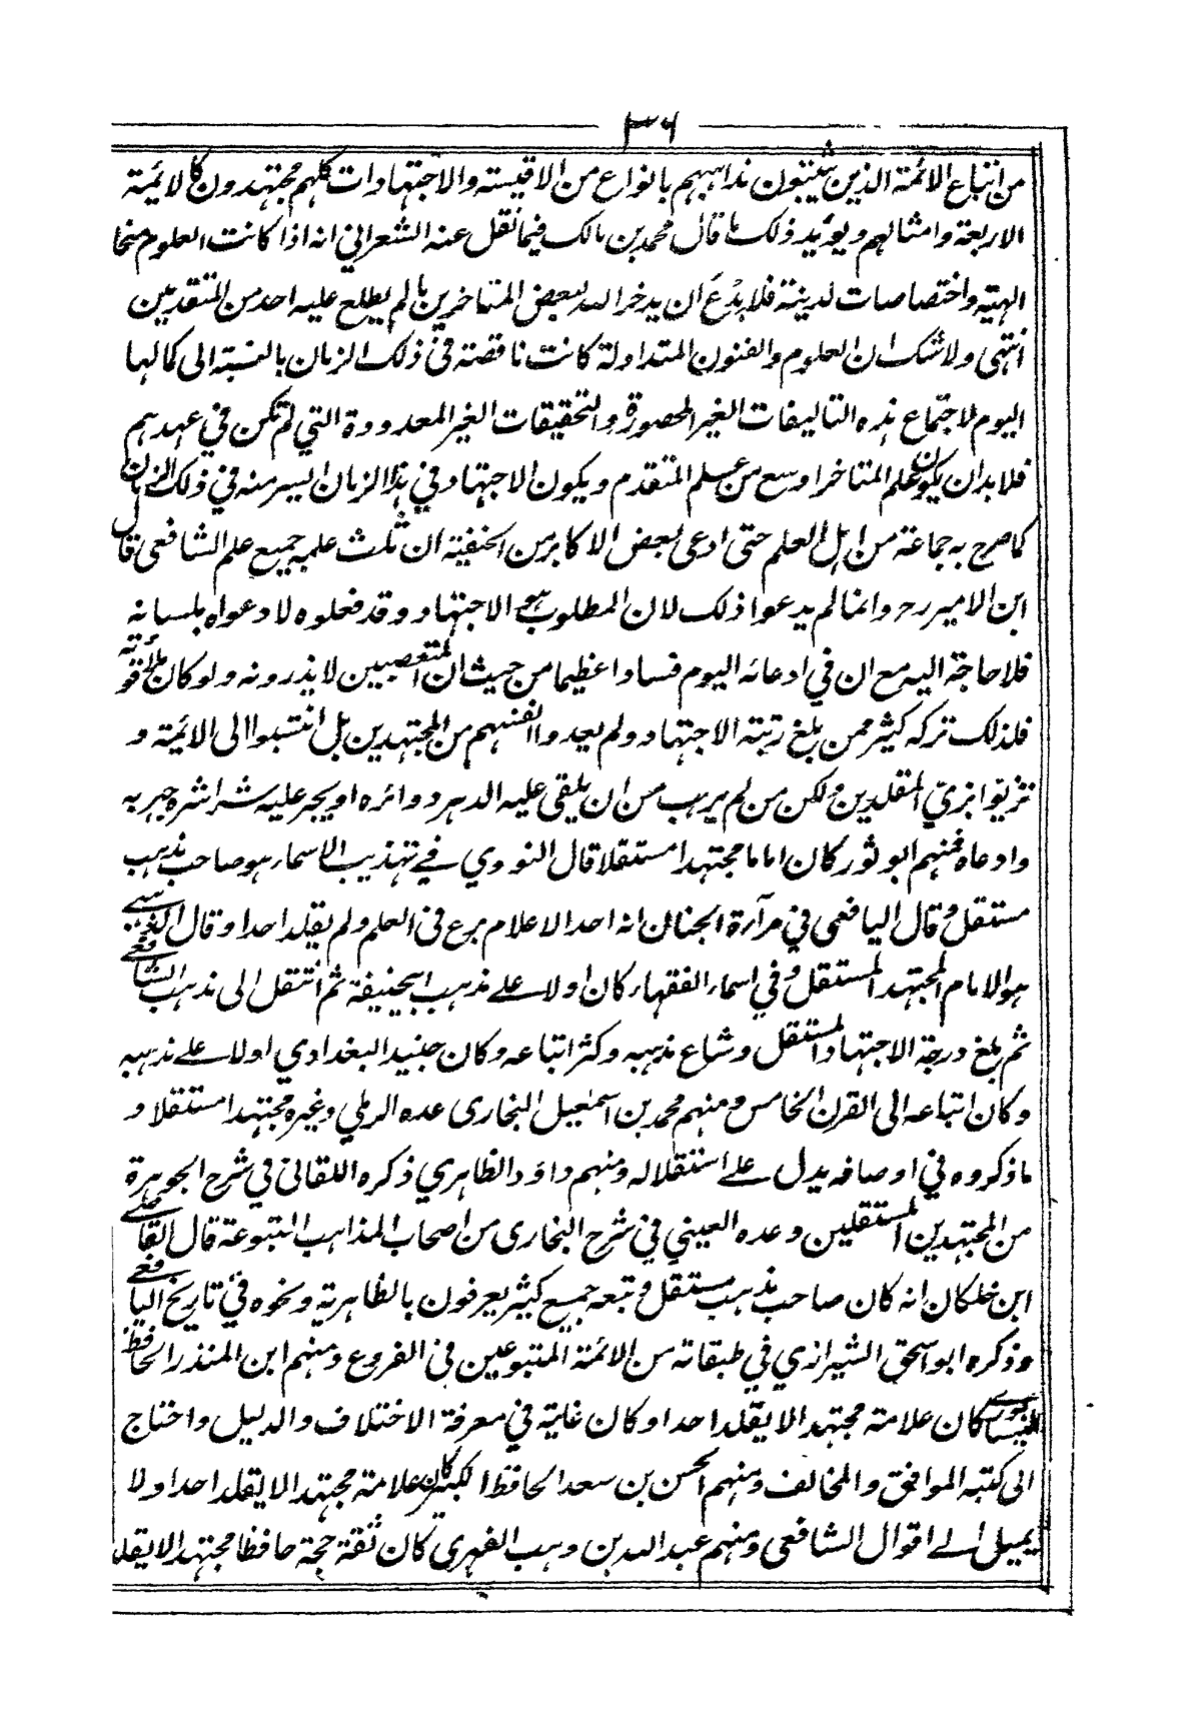 ٣٦
من اتباع الائمة الذين يثبتون مذاهبهم بانواع من الاقيسة والاجتهادات كلهم مجتهدون كالائمة
الاربعة وامثالهم ويؤيد ذلك ما قال محمد بن مالك فيما نقل عنه الشعراني انه اذا كانت العلوم منحا
الهية واختصاصات لدينة فلا بدع ان يدخر الله لبعض المتاخرين ما لم يطلع عليه احد من المتقدمين
انتهى ولا شك ان العلوم والفنون المتداولة كانت ناقصة في ذلك الزمان بالنسبة الى كمالها
اليوم لاجتماع هذه التاليفات الغير المحصورة والتحقيقات الغير المعدودة التي لم تكن في عهدهم
فلا بد ان يكون علم المتاخر اوسع من علم المتقدم ويكون الاجتهاد في هذا الزمان ايسر منه في ذلك الزمان
كما صرح به جماعة من اهل العلم حتى ادعى بعض الاكابر من الحنفية ان ثلث علمه جميع علم الشافعي قال
ابن الامير رح وانما لم يدعوا ذلك لان المطلوب هو الاجتهاد وقد فعلوه لا دعواه بلسانه
فلا حاجة اليه مع ان في ادعائه اليوم فسادا عظيما من حيث ان المتعصبين لا يذرونه ولو كان
فلذلك تركه كثير ممن بلغ رتبة الاجتهاد ولم يعدوا انفسهم من المجتهدين بل انتسبوا الى الائمة و
تزيوا بزي المقلدين ولكن من لم يرهب من ان يلقى عليه الدهر دوائره او يجر عليه شراشره جهر به
وادعاه فمنهم ابو ثور كان اماما مجتهدا مستقلا قال النووي في تهذيب الاسماء هو صاحب مذهب
مستقل وقال اليافعي في مرآة الجنان انه احد الاعلام برع في العلم ولم يقلد احدا وقال الذهبي
هو الامام المجتهد المستقل وفي اسماء الفقهاء كان اولا على مذهب ابيحنيفة ثم انتقل الى مذهب الشافعي
ثم بلغ درجة الاجتهاد المستقل وشاع مذهبه وكثر اتباعه وكان جنيد البغدادي اولا على مذهبه
وكان اتباعه الى القرن الخامس ومنهم محمد بن اسمعيل البخاري عده الرملي وغيره مجتهدا مستقلا و
ما ذكروه في اوصافه يدل على استقلاله ومنهم داؤد الظاهري ذكره اللقاني في شرح الجوهرة
من المجتهدين المستقلين وعده العيني في شرح البخاري من اصحاب المذاهب المتبوعة قال القاضي
ابن خلكان انه كان صاحب مذهب مستقل وتبعه جميع كثير يعرفون بالظاهرية ونحوه في تاريخ اليافعي
وذكره ابو اسحق الشيرازي في طبقاته من الائمة المتبوعين في الفروع ومنهم ابن المنذر الحافظ
النيسابوري كان علامة مجتهدا لا يقلد احدا وكان غاية في معرفة الاختلاف والدليل واحتاج
الى كتبه الموافق والمخالف ومنهم الحسن بن سعد الحافظ الكبير كان علامة مجتهدا لا يقلد احدا ولا
يميل الى اقوال الشافعي ومنهم عبد الله بن وهب الفهري كان ثقة حجة حافظا مجتهدا لا يقلد